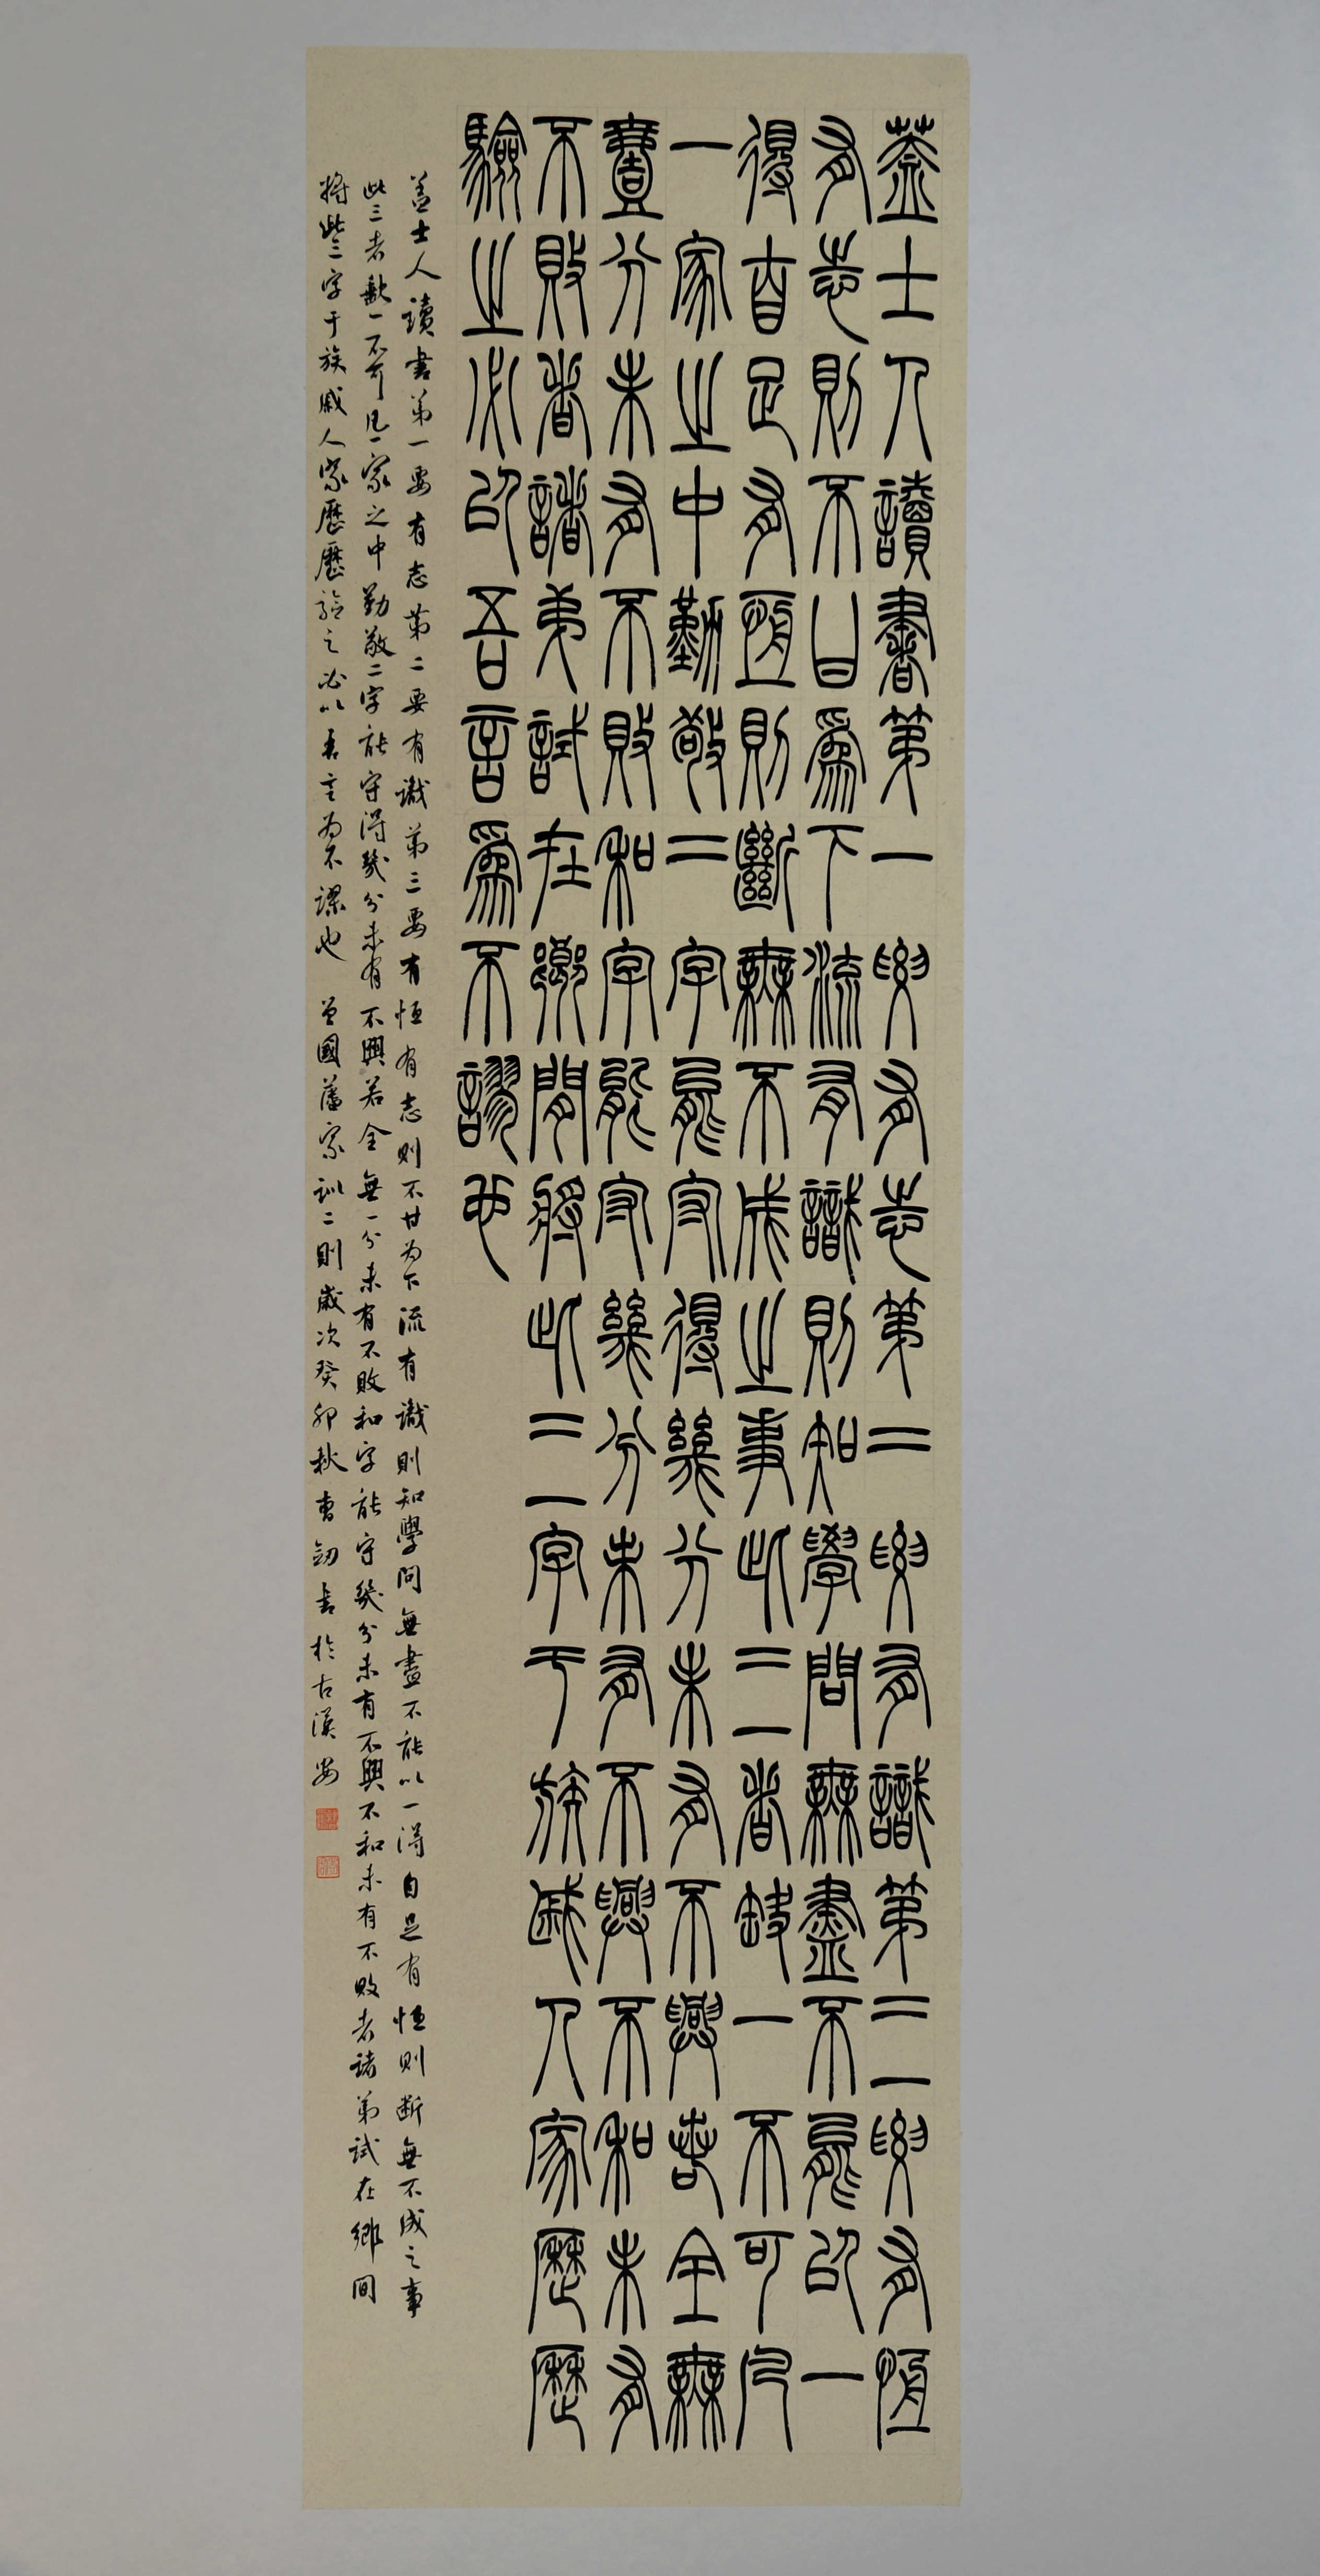 蓋士人讀書第一要有志第二要有識第三要有恆
有志則不甘爲下流有識則知學問無盡不能以一
得自足有恆則斷無不成之事此三者缺一不可凡
一家之中勤敬二字能守得幾分未有不興若全無
壹分未有不敗和字能守幾分未有不興不和未有
不敗者諸弟試在鄉間將此三字于族戚人家歷歷
驗之必以吾言爲不謬也
蓋士人讀書第一要有志第二要有識第三要有恆有志則不甘为下流有識則知學問無盡不能以一得自足有恆則断無不成之事
此三者缺一不可凡一家之中勤敬二字能守得幾分未有不興若全無一分未有不敗和字能守幾分未有不興不和未有不敗者諸弟試在鄉間
將此三字于族戚人家歷歷驗之必以吾言为不謬也 曾國藩家訓二則歲次癸卯秋曹書於古漢安